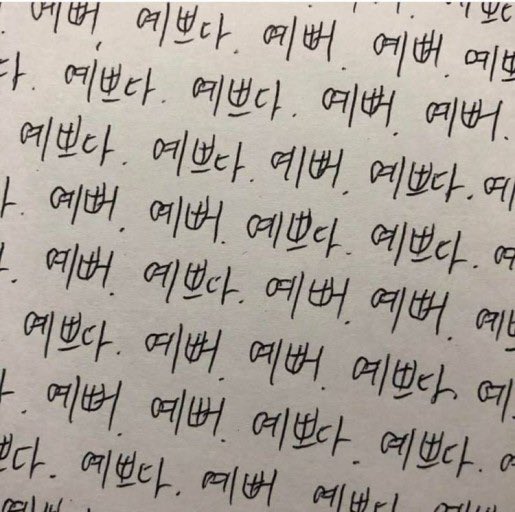 예뻐. 예쁘다. 예뻐. 예뻐.
예쁘다. 예쁘다. 예뻐. 예뻐.
예쁘다. 예쁘다. 예뻐. 예쁘다.
예뻐. 예뻐. 예쁘다. 예쁘다.
예뻐. 예쁘다. 예뻐. 예뻐.
예쁘다. 예뻐. 예뻐. 예쁘다.
예뻐. 예뻐. 예쁘다. 예쁘다.
예쁘다. 예뻐